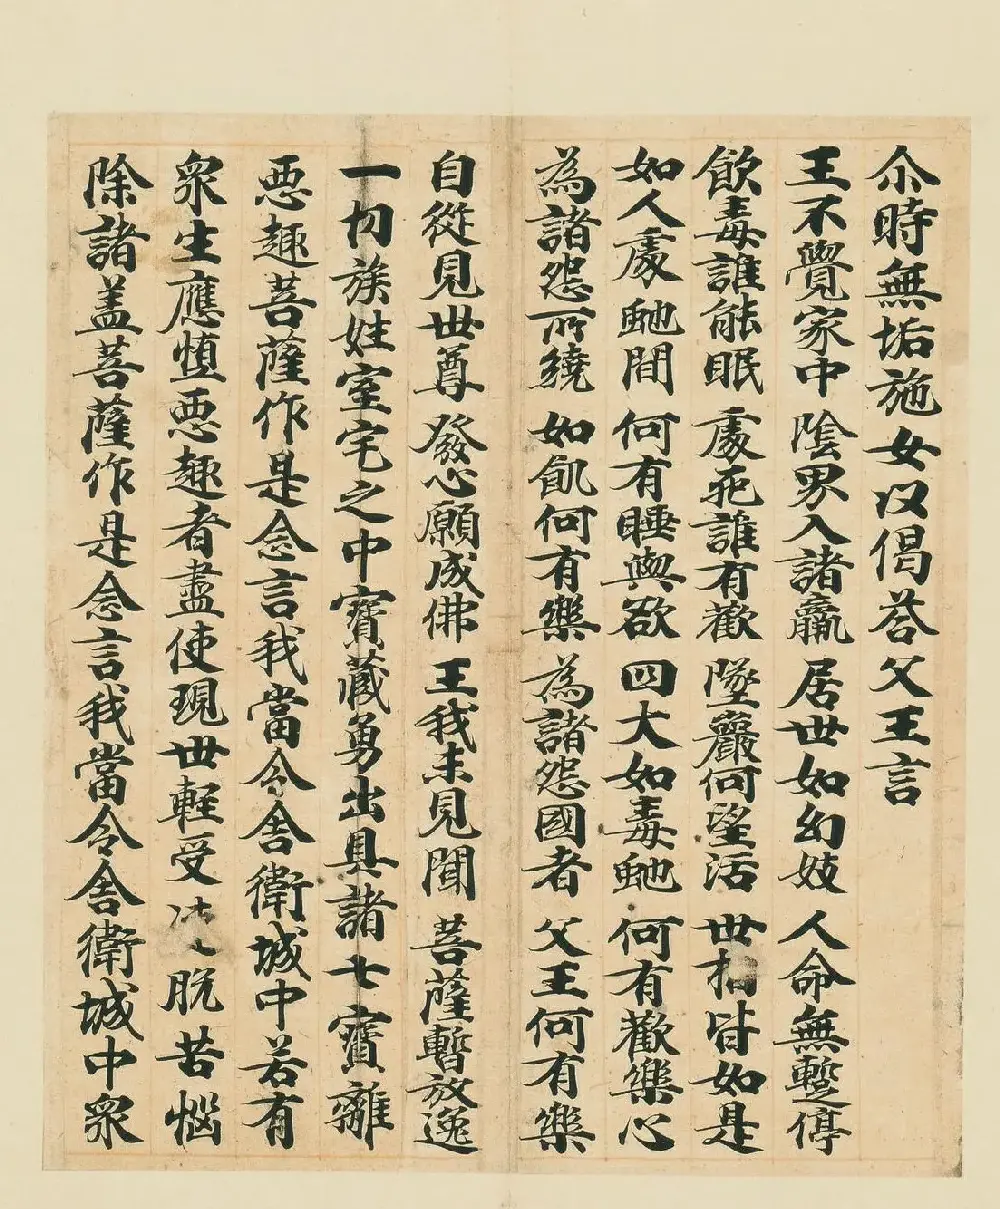 尒時無垢施女以偈荅父王言
王不覺家中 陰界入諸羸 居世如幻妓 人命無蹔停
飲毒誰能眠 處死誰有歡 墜巖何望活 世相皆如是
如人處虵間 何有睡與欲 四大如毒虵 何有歡樂心
為諸怨所繞 如飢何有樂 為諸怨國者 父王何有樂
自從見世尊 發心願成佛 王我未見聞 菩薩暫放逸
一切族姓室宅之中寶藏勇出具諸七寶離
惡趣菩薩作是念言我當令舍衛城中若有
衆生應慎惡趣者盡使現世輕受 脫苦惱
除諸盖菩薩作是念言我當令舍衛城中衆